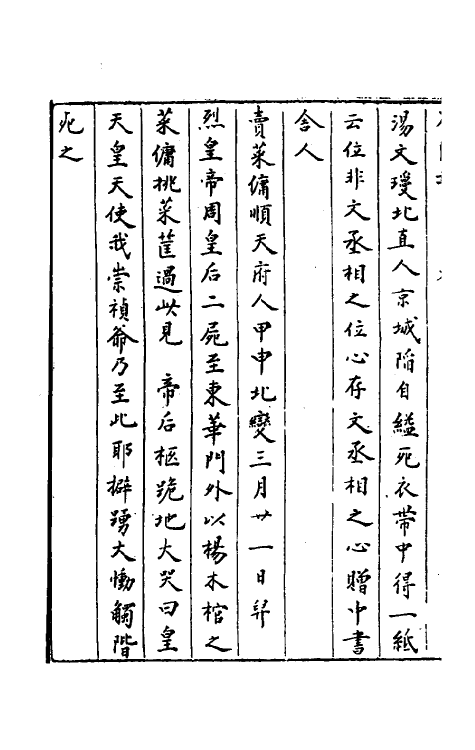 湯文瓊北直人京城陷自縊死衣帶中得一紙
云位非文丞相之位心存文丞相之心贈中書
舍人
賣菜傭順天府人甲申北變三月廿一日舁
烈皇帝周皇后二屍至東華門外以楊木棺之
菜傭挑菜筐過此見　帝后柩跪地大哭曰皇
天皇天使我崇禎爺乃至此耶擗踴大慟觸階
死之